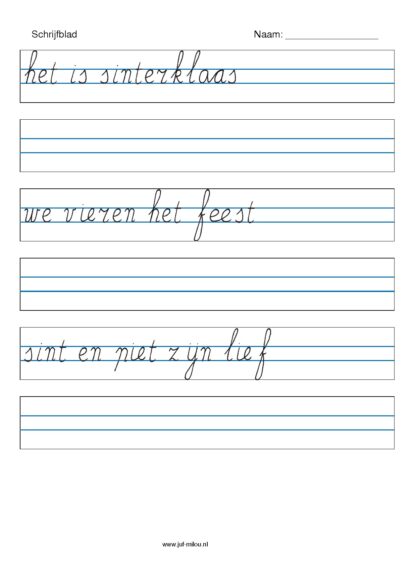 Schrijfblad Naam: ___________________
het is sinterklaas
we vieren het feest
sint en piet zijn lief
www.juf-milou.nl